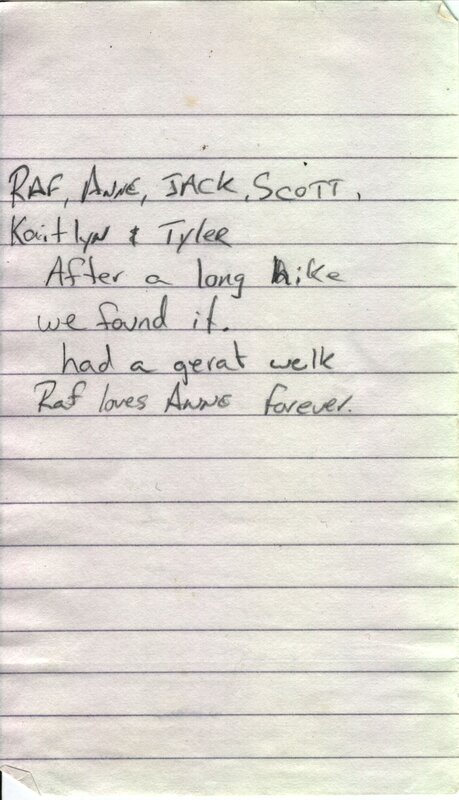 RAF, ANNE, JACK, SCOTT,
Kaitlyn & Tyler
After a long hike
we found it.
had a gerat welk
Raf loves ANNE forever.